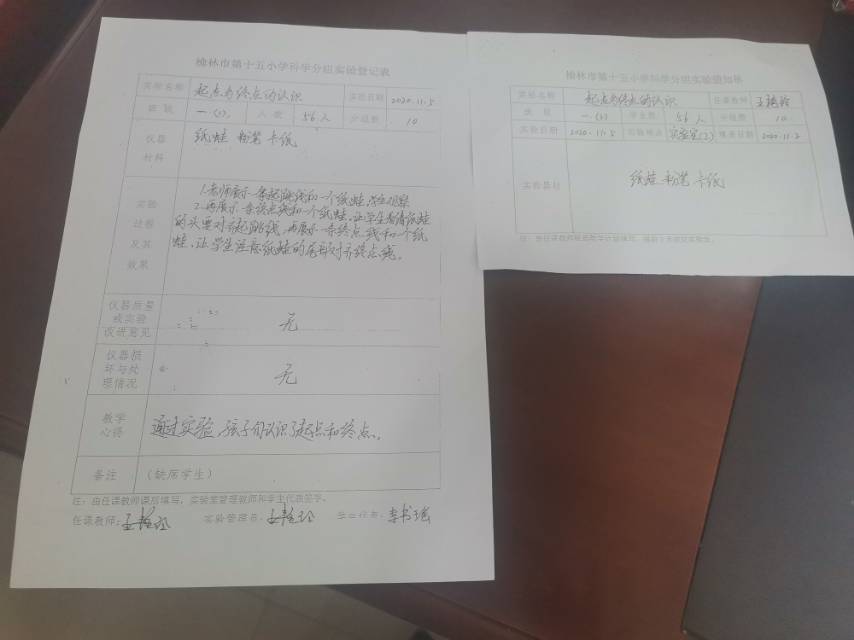 榆林市第十五小学科学分组实验登记表
实验名称 起点与终点的认识 实验日期 2020.11.5
班级 一(2) 人数 56人 分组数 10
仪器材料 纸蛙 粉笔 卡纸
实验过程及其效果
1.老师展示一条起跳线和一个纸蛙,学生观察
2.再展示一条终点线和一个纸蛙,让学生看清纸蛙
的头要对齐起跳线,再展示一条终点线和一个纸
蛙,让学生注意纸蛙的尾部对齐终点线。
仪器质量或实验改进意见 无
仪器损坏与处理情况 无
教学心得 通过实验,孩子们认识了起点和终点。
备注 (缺席学生)
注:由任课教师课后填写,实验室管理教师和学生代表签字。
任课教师: 实验管理员: 学生代表:李书瑶
榆林市第十五小学科学分组实验通知单
实验名称 起点与终点的认识 任课教师
班级 一(2) 学生数 56人 分组数 10
实验日期 2020.11.5 实验地点 实验室(2) 填表日期 2020.11.2
实验器材 纸蛙 粉笔 卡纸